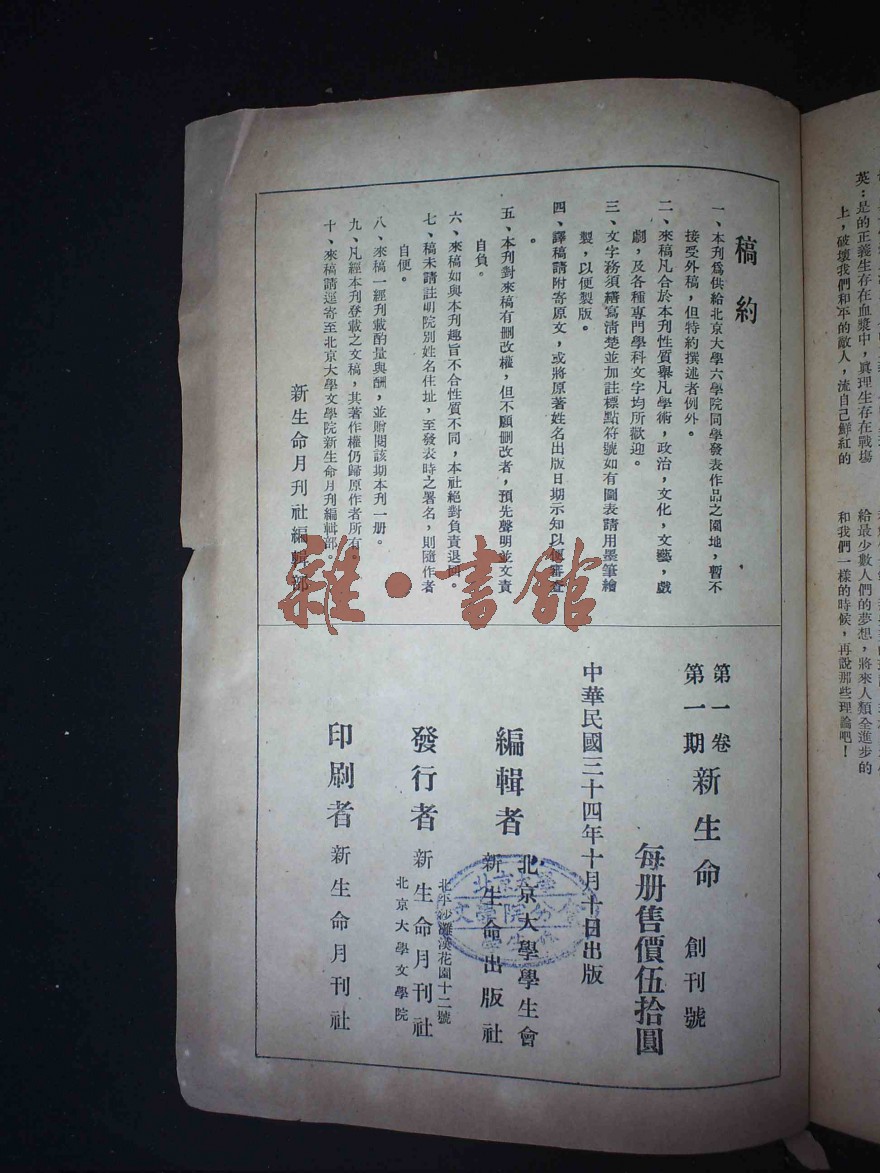 英：是的正義生存在血漿中，眞理生存在戰塲
上，破壞我們和平的敵人，流自己鮮紅的
給最少數人們的夢想，將來人類全進步的
和我們一樣的時候，再說那些理論吧！
稿約
一、本刊爲供給北京大學六學院同學發表作品之園地，暫不
接受外稿，但特約撰述者例外。
二、來稿凡合於本刊性質舉凡學術，政治，文化，文藝，戲
劇，及各種專門學科文字均所歡迎。
三、文字務須繕寫清楚並加註標點符號如有圖表請用墨筆繪
製，以便製版。
四、譯稿請附寄原文，或將原著姓名出版日期示知以便審查
。
五、本刊對來稿有删改權，但不願删改者，預先聲明並文責
自負。
六、來稿如與本刊趣旨不合性質不同，本社絕對負責退回。
七、稿未請註明院別姓名住址，至發表時之署名，則隨作者
自便。
八、來稿一經刊載酌量與酬，並贈閱該期本刊一册。
九、凡經本刊登載之文稿，其著作權仍歸原作者所有。
十、來稿請逕寄至北京大學文學院新生命月刊編輯部。
新生命月刊社編輯部
雜·書館
第一卷
第一期
新生命 創刊號
每册售價伍拾圓
中華民國三十四年十月十日出版
編輯者
北京大學學生會
新生命出版社
北平沙灘漢花園十二號
發行者 新生命月刊社
北京大學文學院
印刷者 新生命月刊社
北京大學
文學院分會